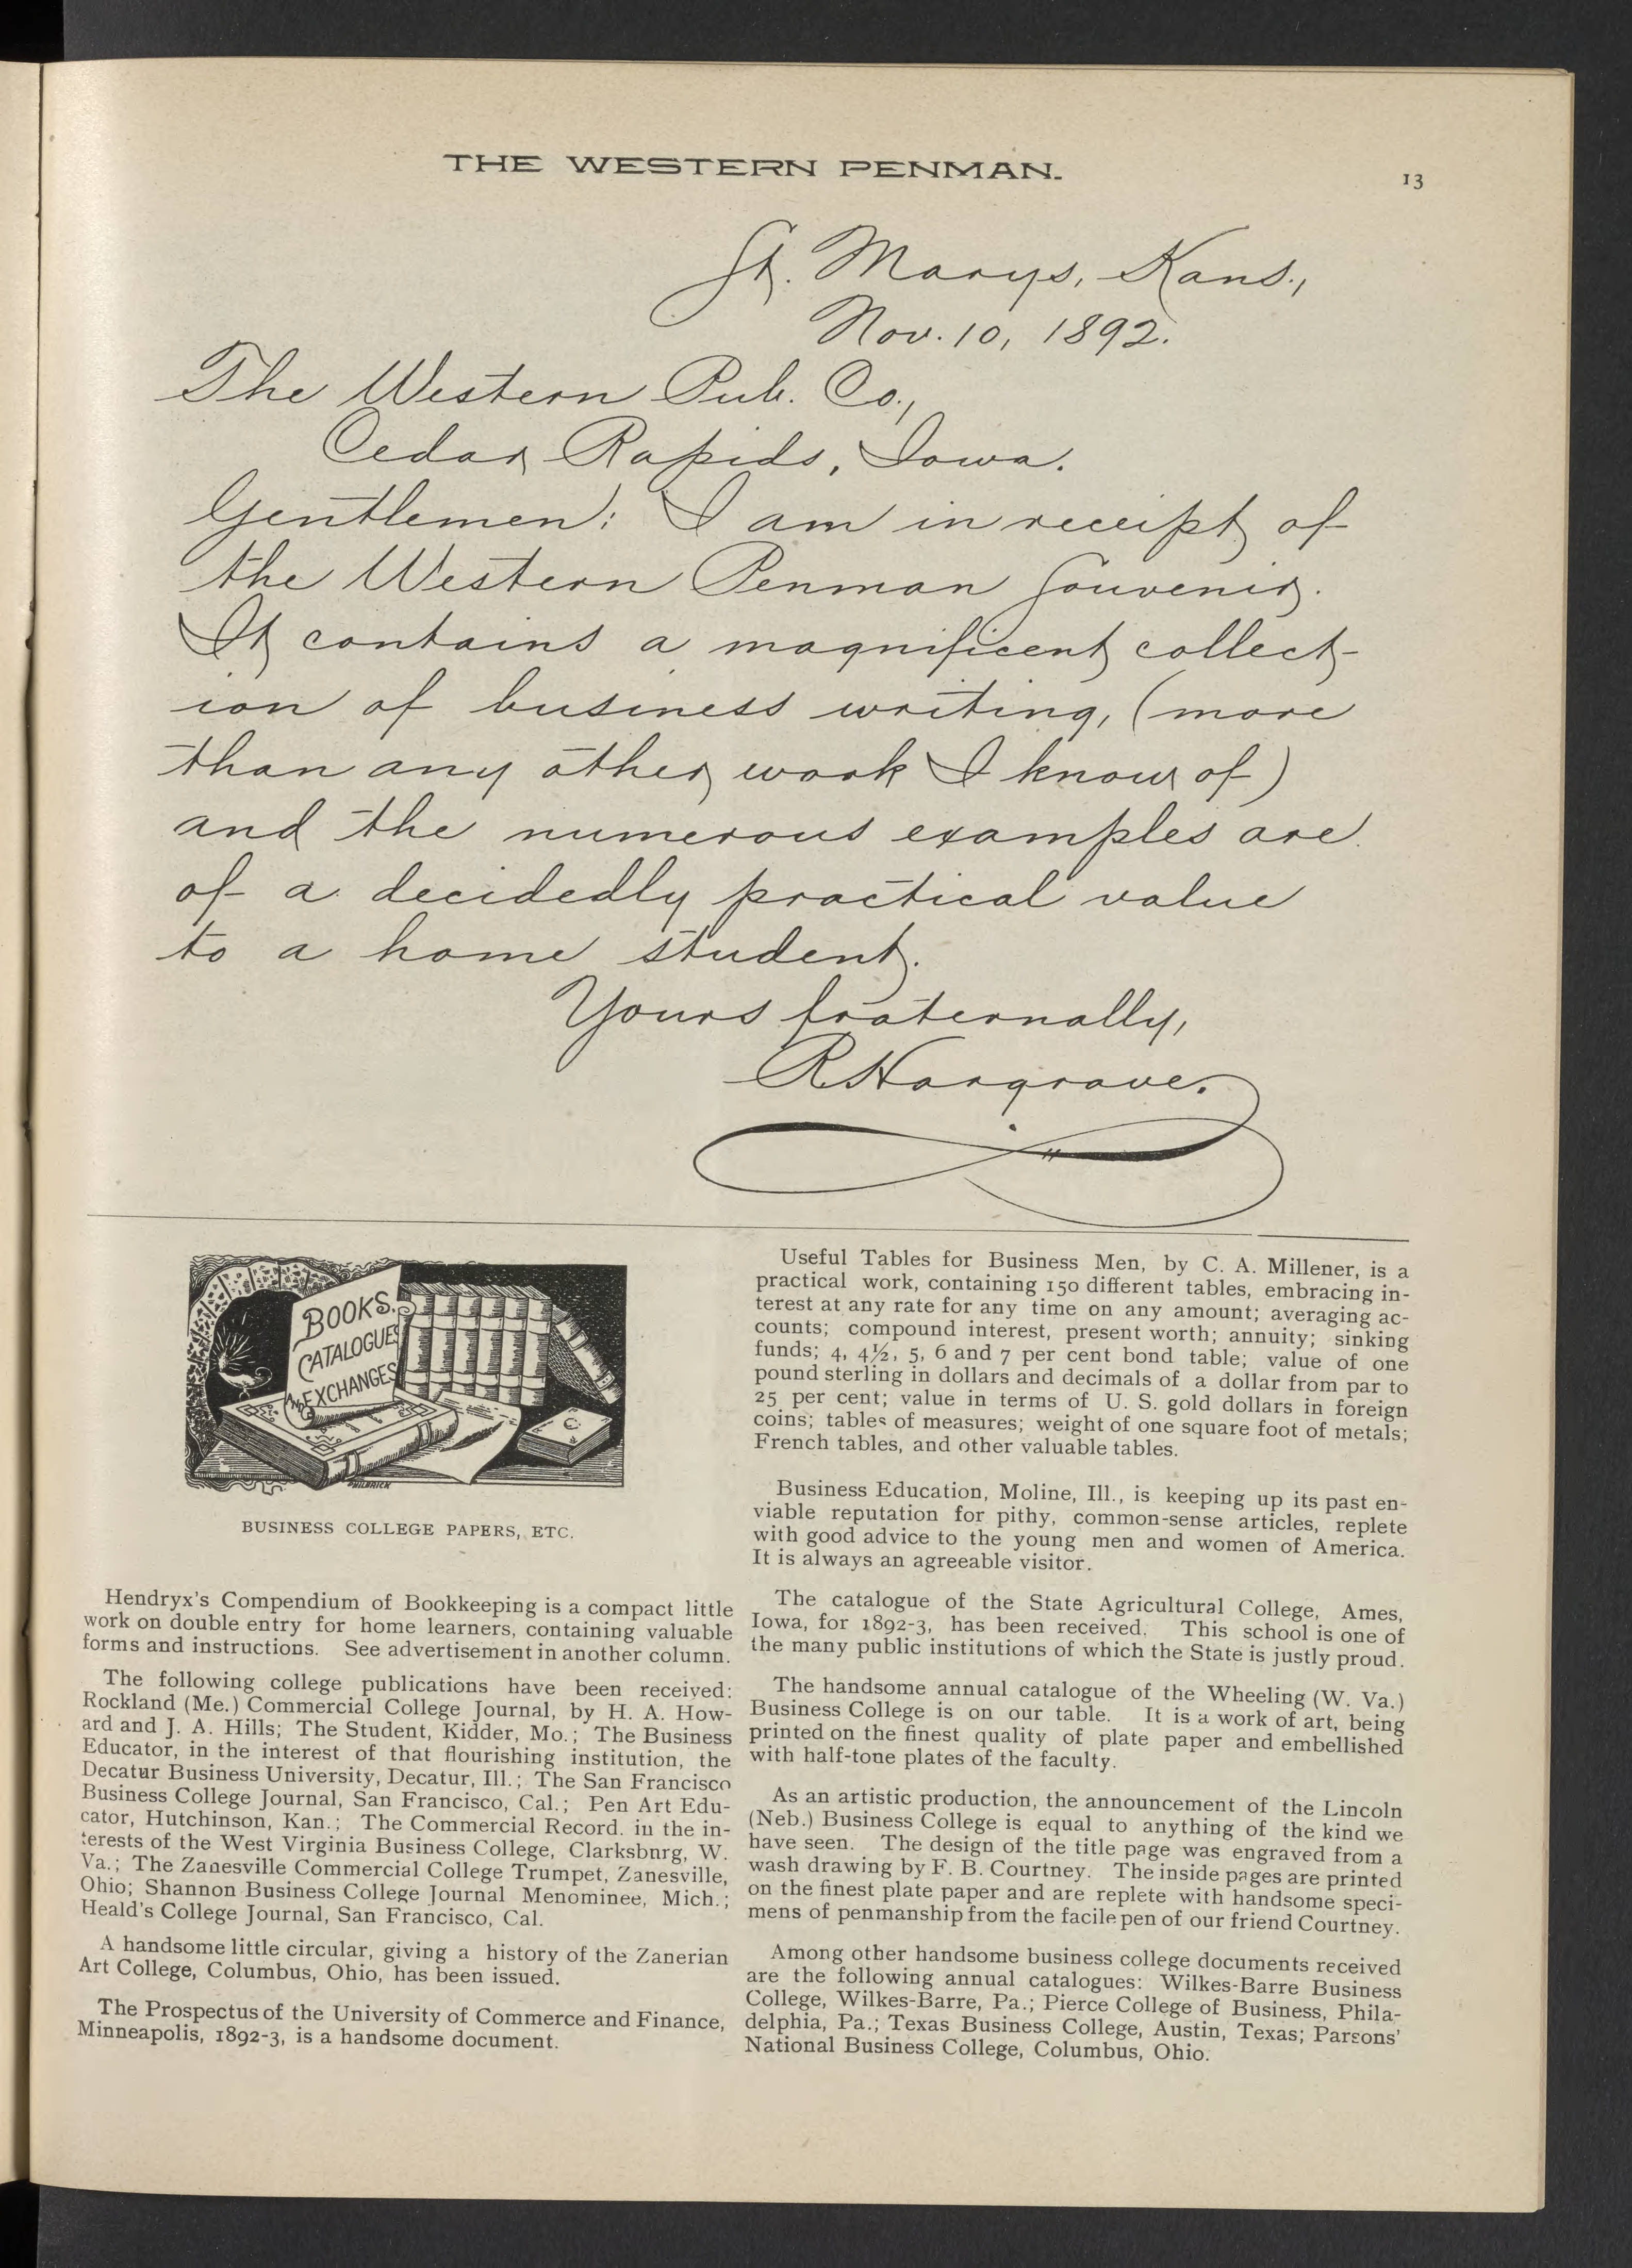 THE WESTERN PENMAN.
13
St. Marys, Kans.,
Nov. 10, 1892.
The Western Pub. Co.,
Cedar Rapids, Iowa.
Gentlemen: I am in receipt of
the Western Penman Souvenir.
It contains a magnificent collect-
ion of business writing, (more
than any other work I know of)
and the numerous examples are
of a decidedly practical value
to a home student.
Yours fraternally,
R Hargrave.
BOOKS.
CATALOGUES
AND EXCHANGES
PHILBRICK
BUSINESS COLLEGE PAPERS, ETC.
Hendryx's Compendium of Bookkeeping is a compact little
work on double entry for home learners, containing valuable
forms and instructions. See advertisement in another column.
The following college publications have been received:
Rockland (Me.) Commercial College Journal, by H. A. How-
ard and J. A. Hills; The Student, Kidder, Mo.; The Business
Educator, in the interest of that flourishing institution, the
Decatur Business University, Decatur, Ill.; The San Francisco
Business College Journal, San Francisco, Cal.; Pen Art Edu-
cator, Hutchinson, Kan.; The Commercial Record. in the in-
terests of the West Virginia Business College, Clarksbnrg, W.
Va.; The Zanesville Commercial College Trumpet, Zanesville,
Ohio; Shannon Business College Journal Menominee, Mich.;
Heald's College Journal, San Francisco, Cal.
A handsome little circular, giving a history of the Zanerian
Art College, Columbus, Ohio, has been issued.
The Prospectus of the University of Commerce and Finance,
Minneapolis, 1892-3, is a handsome document.
Useful Tables for Business Men, by C. A. Millener, is a
practical work, containing 150 different tables, embracing in-
terest at any rate for any time on any amount; averaging ac-
counts; compound interest, present worth; annuity; sinking
funds; 4, 4½, 5, 6 and 7 per cent bond table; value of one
pound sterling in dollars and decimals of a dollar from par to
25 per cent; value in terms of U. S. gold dollars in foreign
coins; tables of measures; weight of one square foot of metals;
French tables, and other valuable tables.
Business Education, Moline, Ill., is keeping up its past en-
viable reputation for pithy, common-sense articles, replete
with good advice to the young men and women of America.
It is always an agreeable visitor.
The catalogue of the State Agricultural College, Ames,
Iowa, for 1892-3, has been received. This school is one of
the many public institutions of which the State is justly proud.
The handsome annual catalogue of the Wheeling (W. Va.)
Business College is on our table. It is a work of art, being
printed on the finest quality of plate paper and embellished
with half-tone plates of the faculty.
As an artistic production, the announcement of the Lincoln
(Neb.) Business College is equal to anything of the kind we
have seen. The design of the title page was engraved from a
wash drawing by F. B. Courtney. The inside pages are printed
on the finest plate paper and are replete with handsome speci-
mens of penmanship from the facile pen of our friend Courtney.
Among other handsome business college documents received
are the following annual catalogues: Wilkes-Barre Business
College, Wilkes-Barre, Pa.; Pierce College of Business, Phila-
delphia, Pa.; Texas Business College, Austin, Texas; Parsons'
National Business College, Columbus, Ohio.